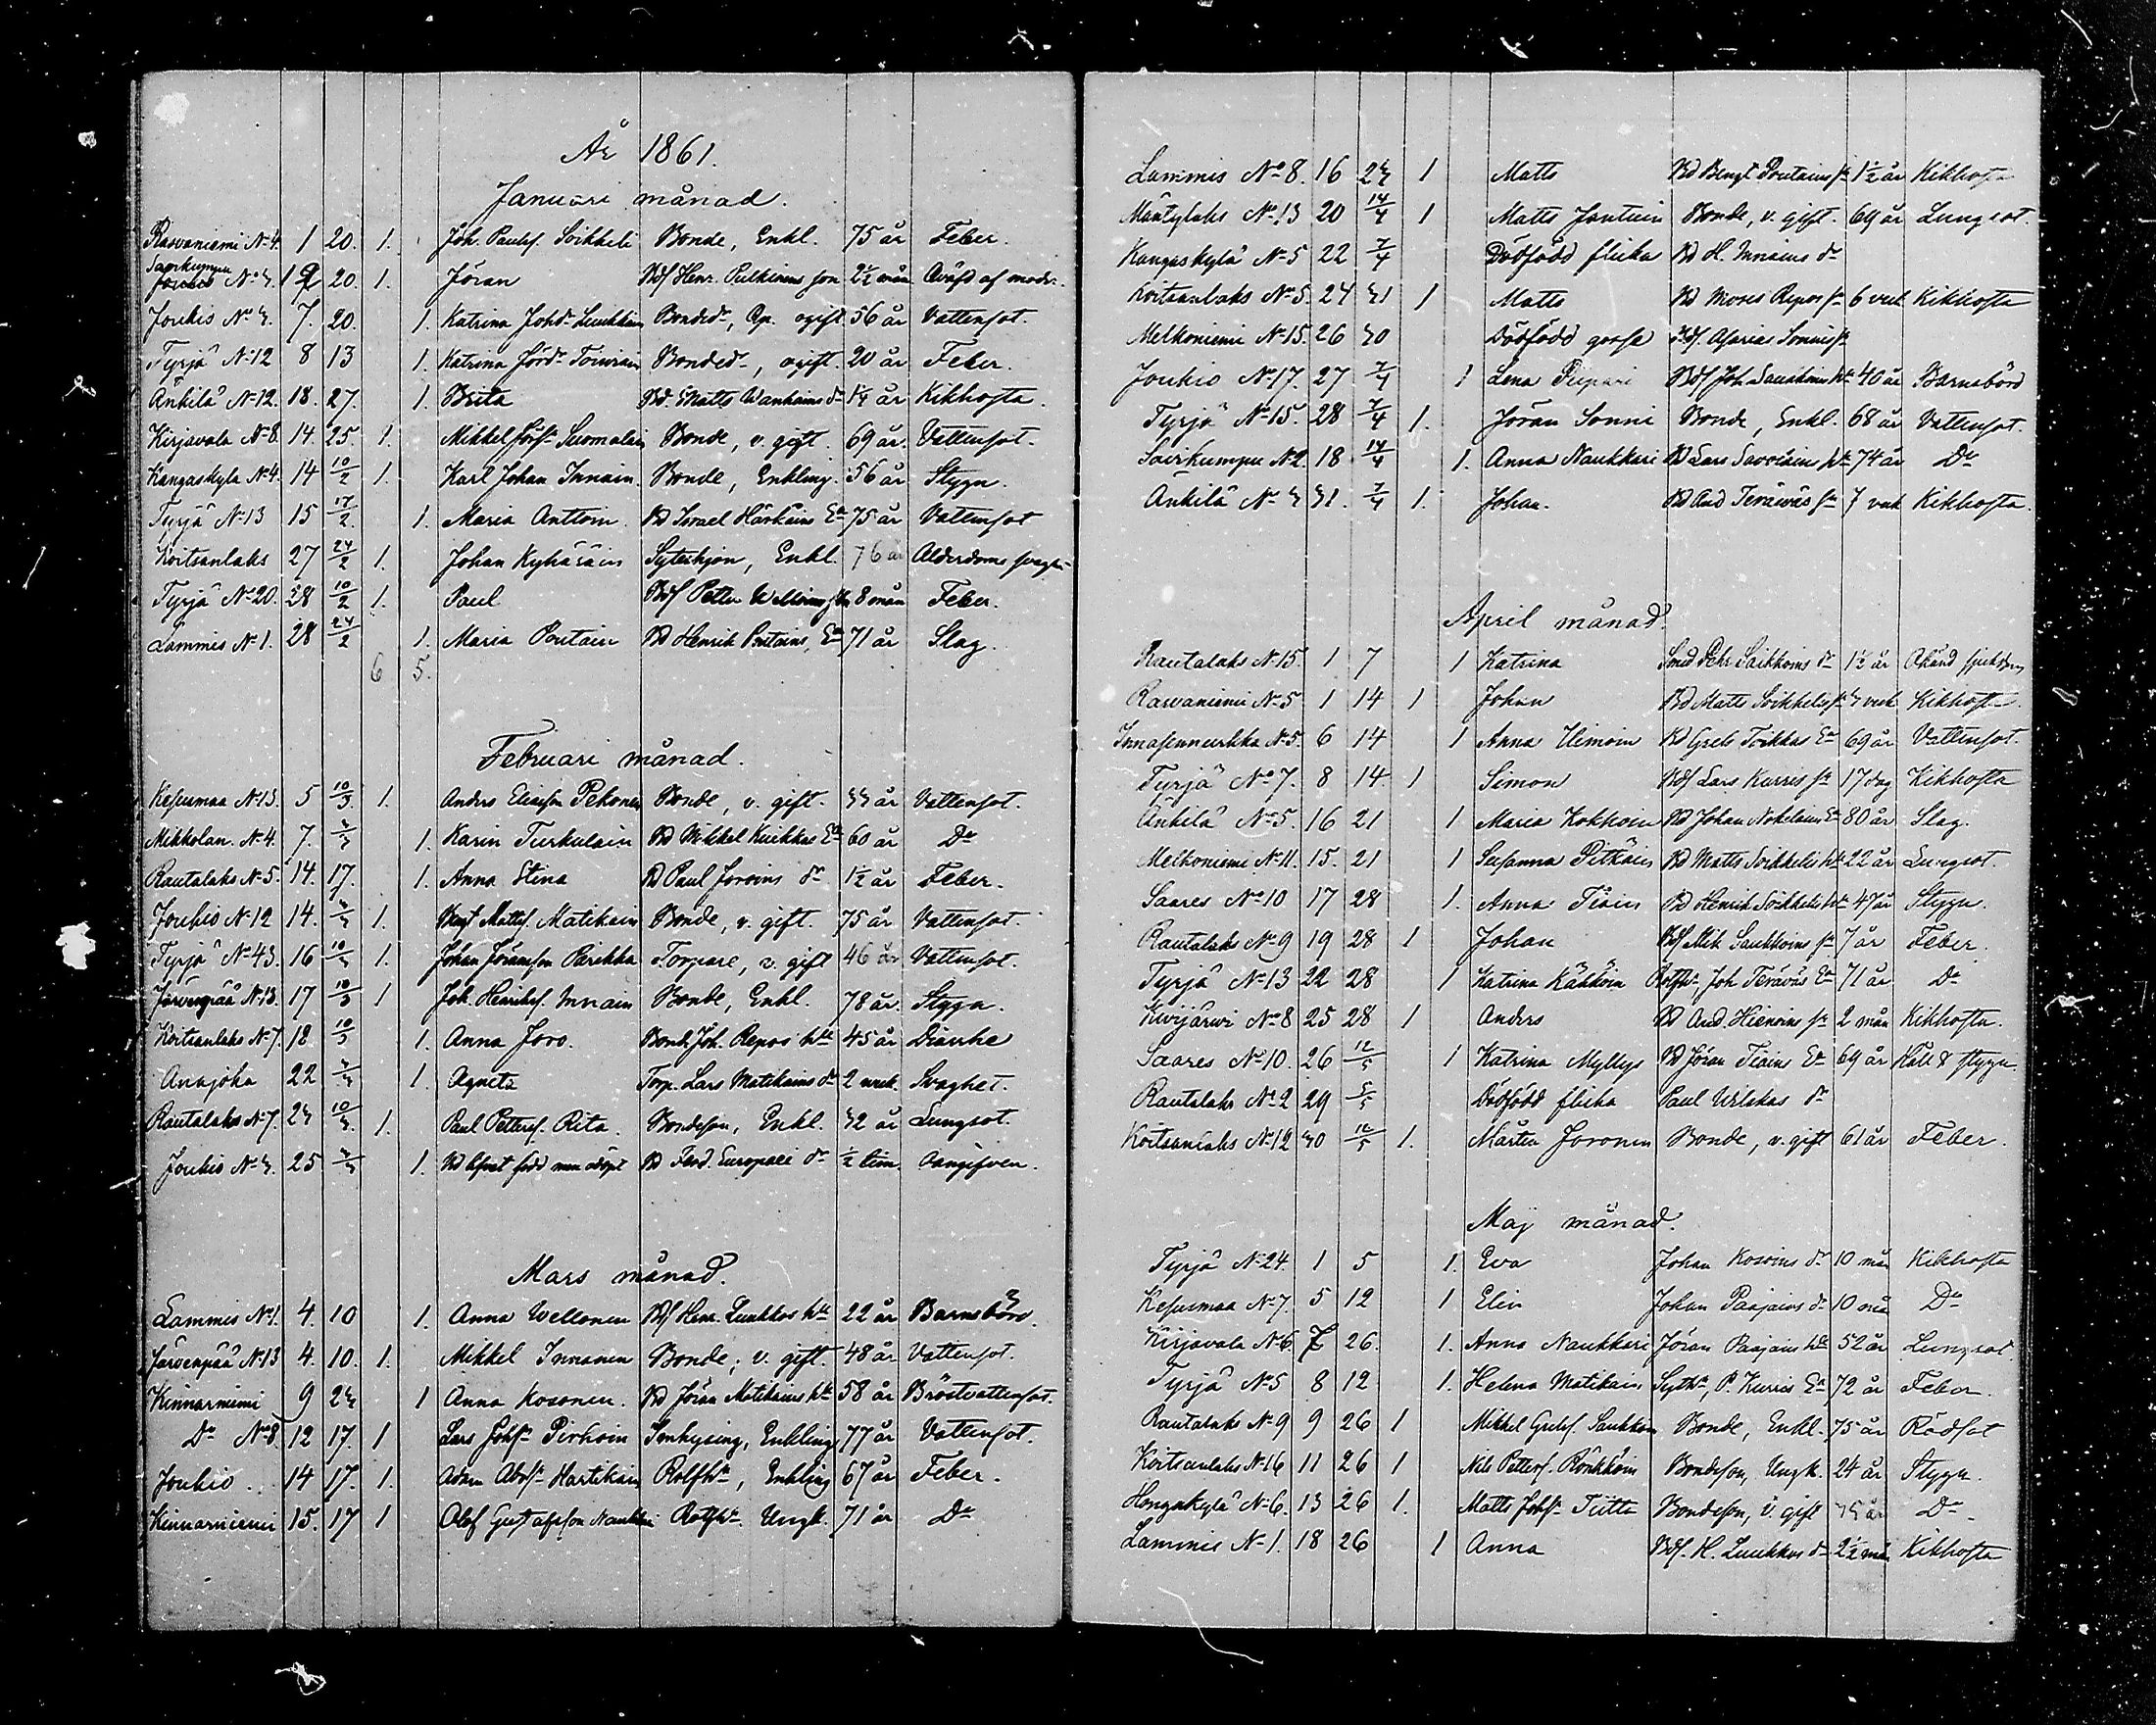 År 1861.
Januari månad.
Rasvaniemi No 4. 1 20. 1. Joh. Paulss. Soikkeli Bonde, Enkl. 75 år Feber.
Saarkumpu
No 3. 1 20. 1. Jöran Bds Henr. Pulkinens son 2½ mån Qväfd af modr.
Joukio No 3. 7. 20. 1. Katrina Johdr Luukkain Bondedr, ogift 56 år Vattensot.
Tyrjä No 12 8 13 1. Katrina Jördr Toiviain Bondedr, ogift. 20 år Feber.
Änkilä No 12. 18. 27. 1. Brita Bd. Matts Wanhains dr 1¼ år Kikhosta.
Kirjavala No 8. 14. 25. 1. Mikkel Jörss. Suomalain Bonde, v. gift. 69 år. Vattensot.
Kangaskylä No 4. 14 10/2 1. Karl Johan Innain Bonde, Enkling. 56 år Stygn.
Tyrjä No 13 15 17/2. 1. Maria Anttoin. Bd Israel Härkäins Ea 75 år Vattensot
Koitsanlaks 27 24/2 1. Johan Kyhäräin Syteshjon, Enkl. 76 år Alderdoms svaghet
Tyrjä No 20. 28 10/2 1. Paul Bds Petter Welloins son 8 mån Feber.
Lammis No 1. 28 24/2 1. Maria Poutain Bd Henrik Poutains, Ea 71 år Slag.
6 5.
Februari månad.
Kesusmaa No 13. 5 10/3. 1. Anders Eliasson Pekonen Bonde, v. gift. 33 år Vattensot.
Mikkolan. No 4. 7. 3/3 1. Karin Turkulain Bd Mikkel Kuikkas Ea 60 år Do
Rautalaks No 5. 14. 17. 1. Anna Stina Bd Paul Joroins dr 1½ år Feber.
Joukio No 12 14. 3/3 1. Bengt Mattss. Matikain Bonde, v. gift. 75 år Vattensot.
Tyrjä No 43. 16 10/3 1. Johan Jöransson Parikka Torpare, v. gift 46 år Vattensot.
Järvenpää No 13. 17 10/3 1 Joh. Henrikss. Innain Bonde, Enkl. 78 år. Stygn.
Koitsanlaks No 7. 18. 10/3 1. Anna Joro. Bond. Joh. Repos htr 45 år Diarrhe
Anajoka 22 3/3 1. Agneta Torp. Lars Matikains dr 2 veck. Svaghet.
Rautalaks No 7. 23 10/3. 1. Paul Petterss. Rita. Bondeson, Enkl. 32 år Lungsot.
Joukio No 3. 25 3/3 1. född men odöpt Bd Ferd. Europaei dr ½ tim. Oangifven.
Mars månad.
Lammis No 1. 4. 10 1. Anna Wellonen Bds Henr. Luukkos htr 22 år Barnsbörd.
Järvenpää No 13 4. 10. 1. Mikkel Innanen Bonde; v. gift. 48 år Vattensot.
Kinnarniemi 9 23 1 Anna Kosonen. Bd Jöran Matikains htr 58 år Bröstvattensot.
Do No 8. 12 17. 1 Lars Johss. Pirhoin Inhysing, Enkling 77 år Vattensot.
Joukio .. 14 17. 1. Adam Abrss. Hartikain Rothjn, Enkling 67 år Feber.
Kinnarniemi 15. 17 1 Olof Gustafsson Naukkari Rothjn. Ungk. 71 år Do
Lammis No 8. 16 23 1 Matts Bd Bengt Poutains sn 1½ år Kikhosta
Mäntylaks No 13 20 14/4 1 Matts Jantuin Bonde, v. gift. 69 år Lungsot.
Kangaskylä No 5 22 7/4 Dödfödd flicka Bd H. Innains dr
Koitsanlaks No 5. 24 31 1 Matts Bd Moses Repos sn 6 veck Kikhosta
Melkoniemi No 15. 26 30 Dödfödd gosse Bds. Asarias Sonnis sn
Joukio No 17. 27 7/4 1 Lena Pipari Bds Joh. Saukkoins htr 40 år Barnsbörd
Tyrjä No 15. 28 7/4 1. Jöran Sonni Bonde, Enkl. 68 år Vattensot.
Savikumpu No 2. 18 14/4 1. Anna Naukkari Bd Lars Savolains htr 74 år Do
Änkilä No 3 31. 7/4 1. Johan. Bd And Teräväs sn 7 veck Kikhosta.
April månad.
Rautalaks No 15. 1 7 1 Katrina Smed Pehr Saikkoins dr 1½ år Okänd sjukdom
Rasvaniemi No 5 1 14 1 Johan Bd Matts Soikkelis sn 3 veck Kikhosta.
Innasennurkka No 5. 6 14 1 Anna Ilmoin Bd Grels Toikkas Ea 69 år Vattensot.
Tyrjä No 7. 8 14. 1 Simon Bds Lars Kurres sn 17 dag Kikhosta
Änkilä No 5. 16 21 1 Maria Kokkoin Bd Johan Nokelains Ea 80 år Slag.
Melkoniemi No 11. 15. 21 1 Susanna Pitkäin Bd Matts Soikkelis htr 22 år Lungsot.
Saares No 10 17 28 1. Anna Tiain Bd Henrik Soikkelis htr 47 år Stygn.
Rautalaks No 9 19 28 1 Johan Bds Mik Saukkoins sn 7 år Feber.
Tyrjä No 13 22 28 1 Katrina Käkköin Rothjn, Joh Teräväs Ea 71 år Do
Kivijärvi No 8 25 28 1 Anders Bd And. Hienoins sn 2 mån Kikhosta.
Saares No 10. 26 12/5 1 Katrina Myllys Bd Jöran Tiains Ea 69 år Håll & stygn
Rautalaks No 2 29 5/5 Dödfödd flicka Paul Wilskas dr
Koitsanlaks No 12 30 12/5 1. Mårten Joronen Bonde, v. gift 61 år Feber.
Maj månad.
Tyrjä No 24. 1 5 1. Eva Johan Kosoins dr 10 mån Kikhosta
Kesusmaa No 7. 5 12 1 Elin Johan Paajains dr 10 mån Do
Kirjavala No 6. 7 26. 1. Anna Naukkari Jöran Paajains htr 52 år Lungsot.
Tyrjä No 5 8 12 1. Helena Matikain Sythn, P. Kurris Ea 72 år Feber.
Rautalaks No 9 9 26 1 Mikkel Grelss. Saukkon Bonde, Enkl. 75 år Rödsot
Koitsanlaks No 16 11 26 1 Nils Petterss. Rönkköin Bondeson, Ungk. 24 år Stygn.
Hongakylä No 6. 13 26 1. Matts Johss. Tiitta Bondeson, v. gift 35 år Do
Lammis No 1. 18 26 1 Anna Bds. H. Luukkos dr 2½ mån Kikhosta